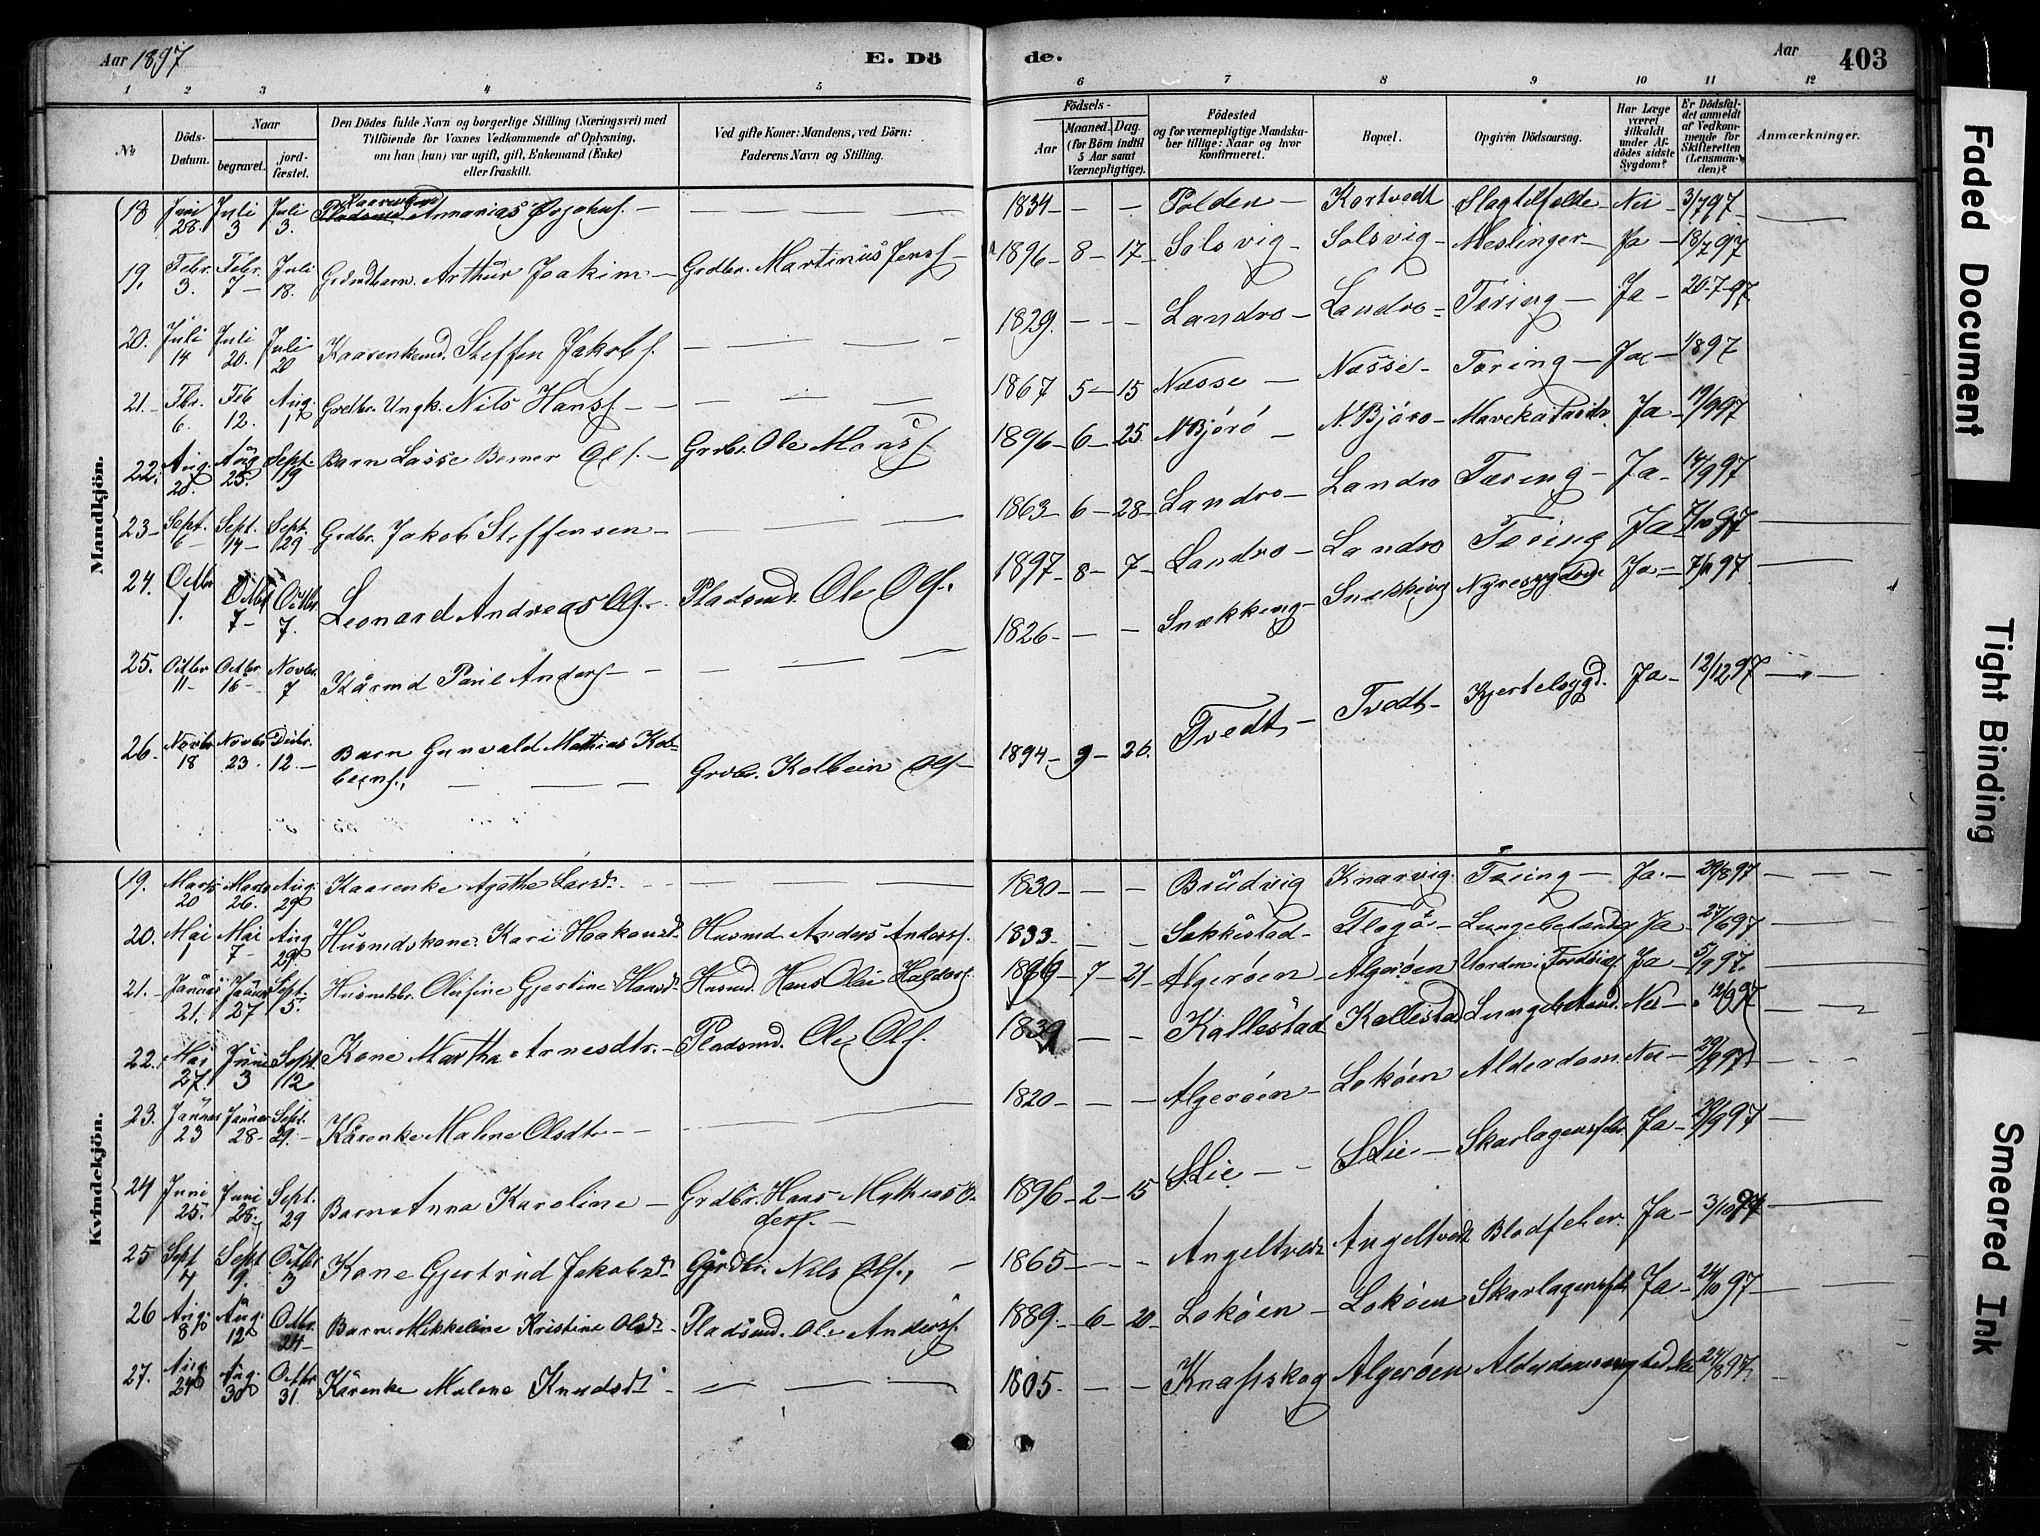 Aar 1897 E. Dö de. Aar 403
1 2 3 4 5 6 7 8 9 10 11 12
No Döds-Datum. Naar begravet. jordfæstet.
Den Dödes fulde Navn og borgerlige Stilling (Næringsvei) med
Tilföiende for Voxnes Vedkommende af Oplysning,
om han (hun) var ugift, gift, Enkemand (Enke)
eller fraskilt.
Ved gifte Koner: Mandens, ved Börn:
Faderens Navn og Stilling.
Födsels-
Aar Maaned. Dag.
(for Börn indtil 5 Aar samt Værnepligtige).
Födested
og for værnepligtige Mandskaber tillige: Naar og hvor konfirmeret.
Bopæl.
Opgiven Dödsaarsag.
Har Læge været tilkaldt under Afdödes sidste Sygdom?
Er Dödsfaldet anmeldt af Vedkommende for Skifteretten (Lensmanden)?
Anmærkninger.
Mandkjön.
18 Juni 28 Juli 3 Juli 3. 1834 — — Polden Kortvedt Slagtilfælde Nei 3/7 97
19. Febr. 3. Febr. 7 Juli 18. Grdmdbarn. Arthur Joakim Grdbr. Martinius Jensf. 1896 8 17 Solsvig Solsvig Meslinger Ja 18/7 97
20. Juli 14 Juli 20. Juli 20 Kaarenkemd. Steffen Jakobsf. 1829. — — Landro Landro Tæring Ja 20-7-97
21. Fbr. 6. Feb 12. Aug. 1 Grdbr. Ungk. Nils Hansf. 1867 5 15 Næsse Næsse Tæring Ja 1/8 97
22. Aug. 20. Aug 25. Sept. 19 Barn Lasse Berner Olsf. Grdbr. Ole Monsf. 1896 6 25. N Bjørø N. Bjørø Ja 19/9 97
23 Sept. 6 Sept. 14 Sept 29 Grdbr. Jakob Steffensen 1863 6 28 Landro Landro Tæring Ja
24. Octbr 1. Octbr 7 Octbr 7. Leonard Andreas Olsf. Pladsmd. Ole Olsf. 1897 8 7 Landro Landro Tæring Ja 7/10 97
25. Octbr 11 Octbr 16 Novbr. 7 Kårmd Poul Andersf. 1826 — — Snekkevig Nyresygdom Ja 7/11 97
26. Novbr 18 Novbr 23. Decbr. 12. Barn Gunvald Mathias Kolbeinsf., Grdbr. Kolbein Olsf. 1894 9 26. Tvedt Tvedt Kjertelsygd. Ja 12/12 97
Kvindekjön.
19. Marts 20 Marts 26. Aug. 29 Kaarenke Agathe Larsdt. 1830 — — Brudvig Knarvig Tæring Ja 29/8 97
20. Mai 1 Mai 7 Aug 29 Husmdskone Kari Haakonsdt. Husmd Anders Andersf. 1833 — — Sekkestad Lungebetændelse Ja
21. Januar 21. Januar 27 Sept. 5. Olufine Gjertine Hansdt. Husmd. Hans Olai Haldorsf. 7 21 Algerøen Algerøen Ja 5/9 97.
22. Mai 27. Juni 3 Sept. 12 Kone Martha Arnesdtr. Pladsmd. Ole Olsf. 1839 — — Kallestad Kallestad Lungebetænd. Nei 12/9 97
23. Januar 23 Januar 28 Sept. 29. Kårenke Malene Olsdtr 1820 — — Algerøen Lokøen Alderdom Nei 29/9 97
24 Juni 25. Juni 28. Sept. 29 Barn Anna Karoline Grdbr. Hans Mathias Andersf. 1896 2 15 S Lie S. Lie Skarlagensfeber Ja 29/9 97
25 Sept 4 Sept 9. Octbr 3 Kone Gjertrud Jakobsdt. Gårdbr. Nils Olsf., 1865 — — Angeltvedt Angeltvedt Blodfeber. Ja 3/10 97
26 Aug. 8 Aug. 12 Octbr. 24 Barn Mikkeline Kristine Olsdt. Pladsmd. Ole Andersf. 1889. 6 20 Lokøen Lokøen Skarlagensfeber Ja 24/10 97
27. Aug. 24 Aug. 30 Octbr 31. Kårenke Malene Knudsdt. 1805. — — Knapskog Algerøen Alderdomssvaghed Nei
Faded Document
Tight Binding
Smeared Ink